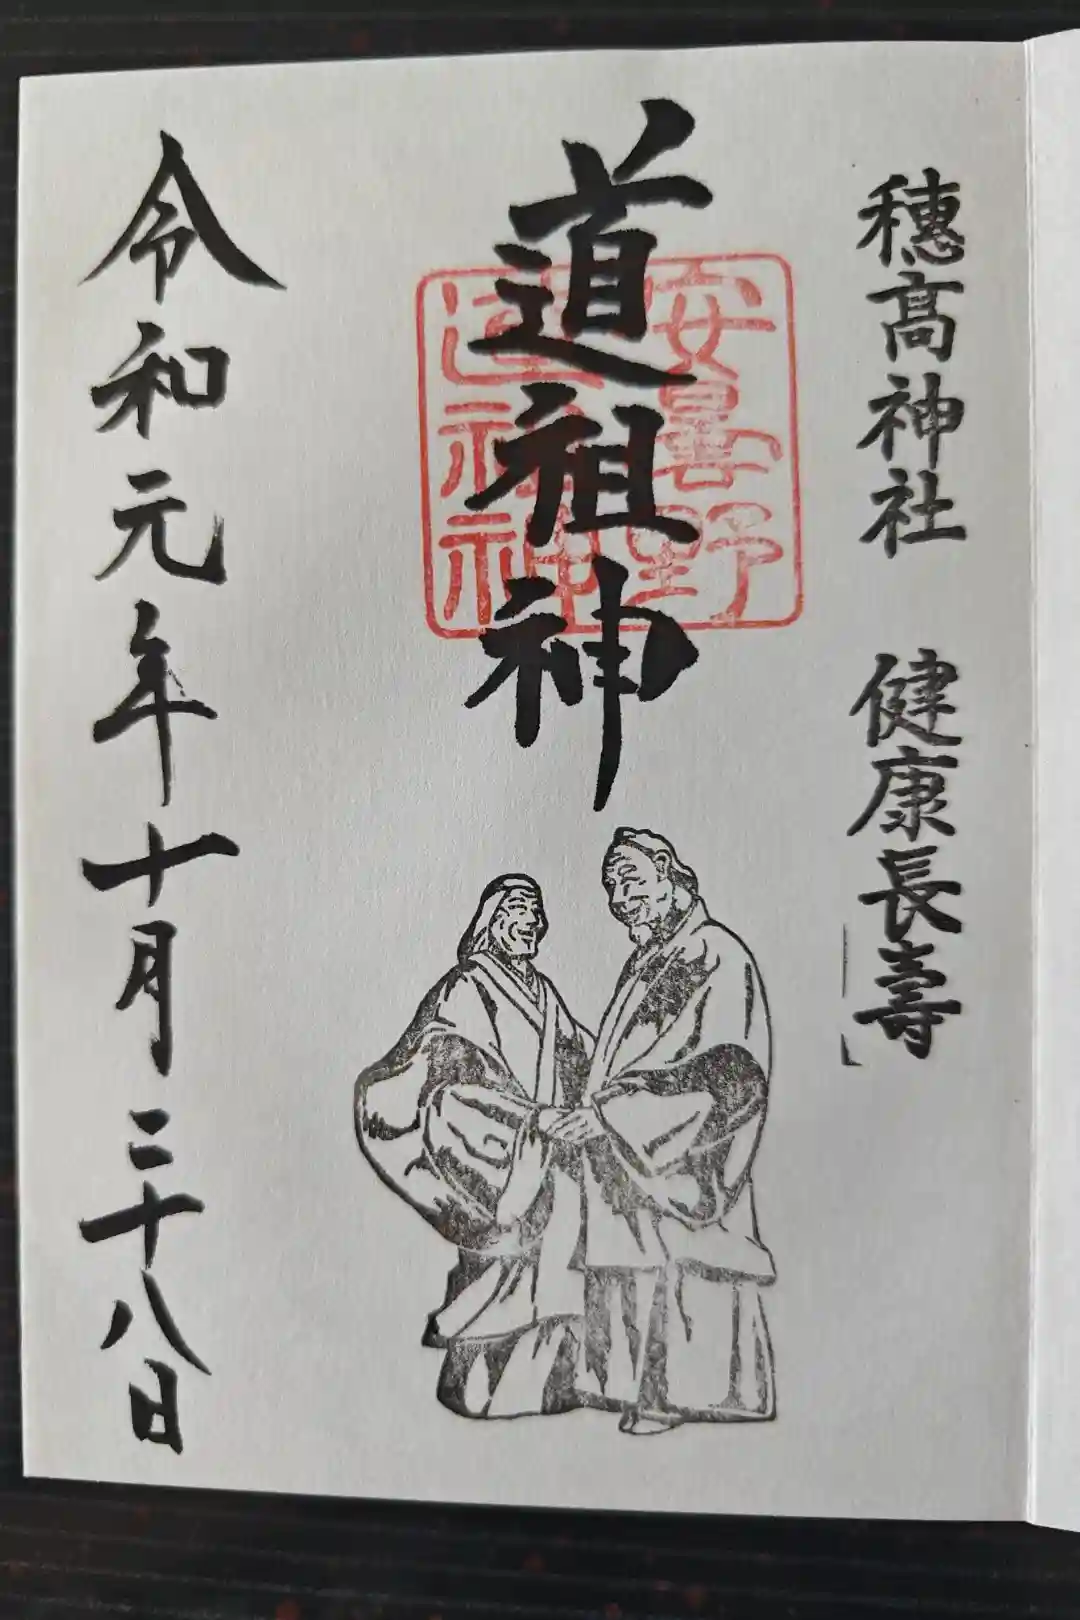 穗高神社 健康長壽
道祖神
安曇野
道祖神
令和元年十月二十八日